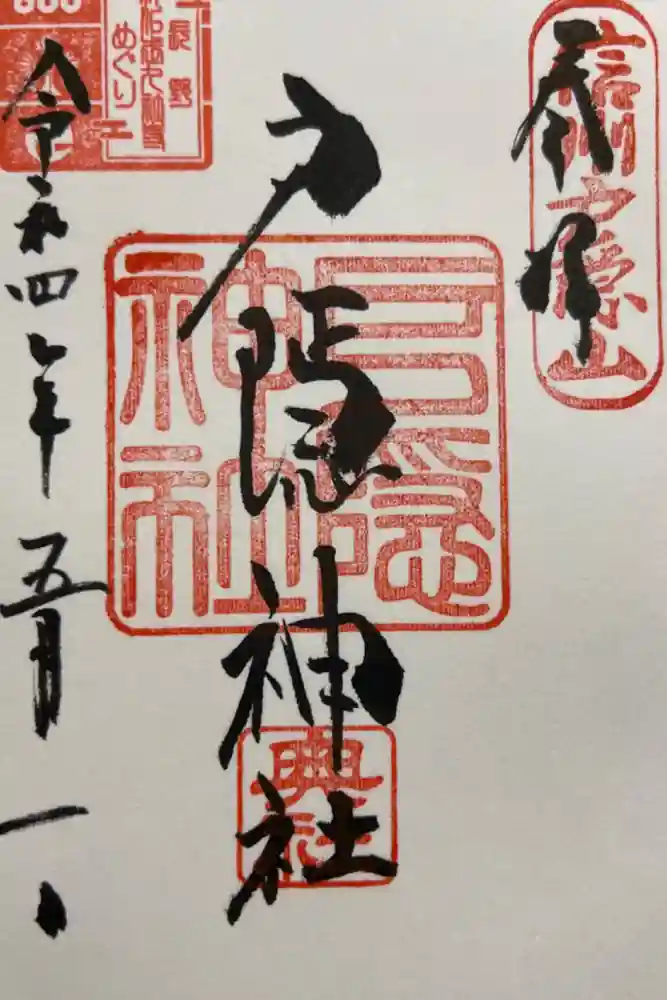 奉拝
信州戸隠山
戸隠神社
戸隠
神社
奥社
令和四年五月一日
長野
めぐり